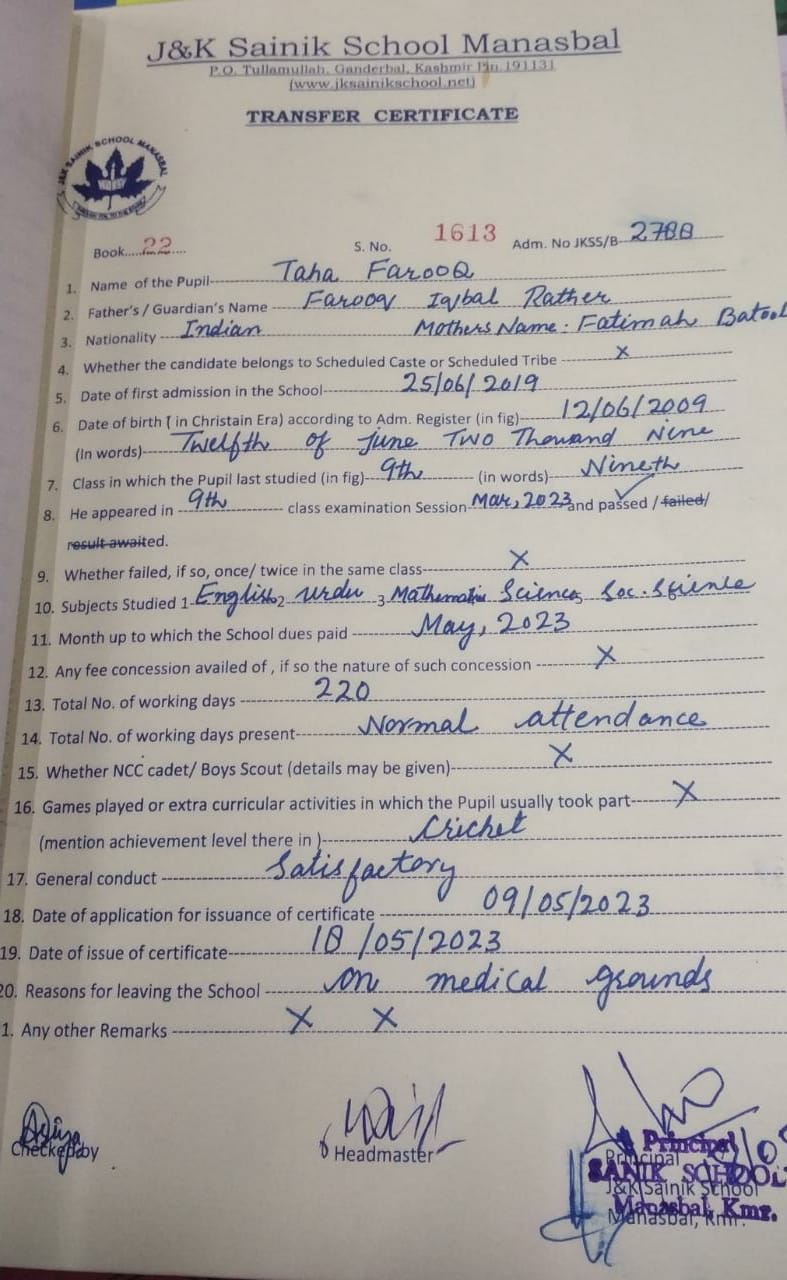 J&K Sainik School Manasbal
P.O. Tullamullah, Ganderbal, Kashmir Pin.191131
(www.jksainikschool.net)
TRANSFER CERTIFICATE
J&K SAINIK SCHOOL MANASBAL
Book.....22.... S. No. 1613 Adm. No JKSS/B- 2788
1. Name of the Pupil- Taha FarooQ
2. Father's / Guardian's Name - Farooq Iqbal Rather
3. Nationality - Indian Mothers Name: Fatimah Batool
4. Whether the candidate belongs to Scheduled Caste or Scheduled Tribe - X
5. Date of first admission in the School- 25/06/2019
6. Date of birth ( in Christain Era) according to Adm. Register (in fig)- 12/06/2009
(In words)- Twelfth of June Two Thousand Nine
7. Class in which the Pupil last studied (in fig)- 9th - (in words)- Nineth
8. He appeared in 9th - class examination Session Mar, 2023 and passed / failed/
result awaited.
9. Whether failed, if so, once/ twice in the same class- X
10. Subjects Studied 1- English 2 Urdu 3 Mathematic Science, Soc. Science
11. Month up to which the School dues paid - May, 2023
12. Any fee concession availed of , if so the nature of such concession - X
13. Total No. of working days - 220
14. Total No. of working days present- Normal attendance
15. Whether NCC cadet/ Boys Scout (details may be given)- X
16. Games played or extra curricular activities in which the Pupil usually took part- X
(mention achievement level there in )- Cricket
17. General conduct - Satisfactory
18. Date of application for issuance of certificate - 09/05/2023
19. Date of issue of certificate- 18/05/2023
20. Reasons for leaving the School - on medical grounds
1. Any other Remarks - X X
Checked by Headmaster Principal
J&K Sainik School
Manasbal, Kmr.
Principal
SANIK SCHOOL
Manasbal, Kmr.